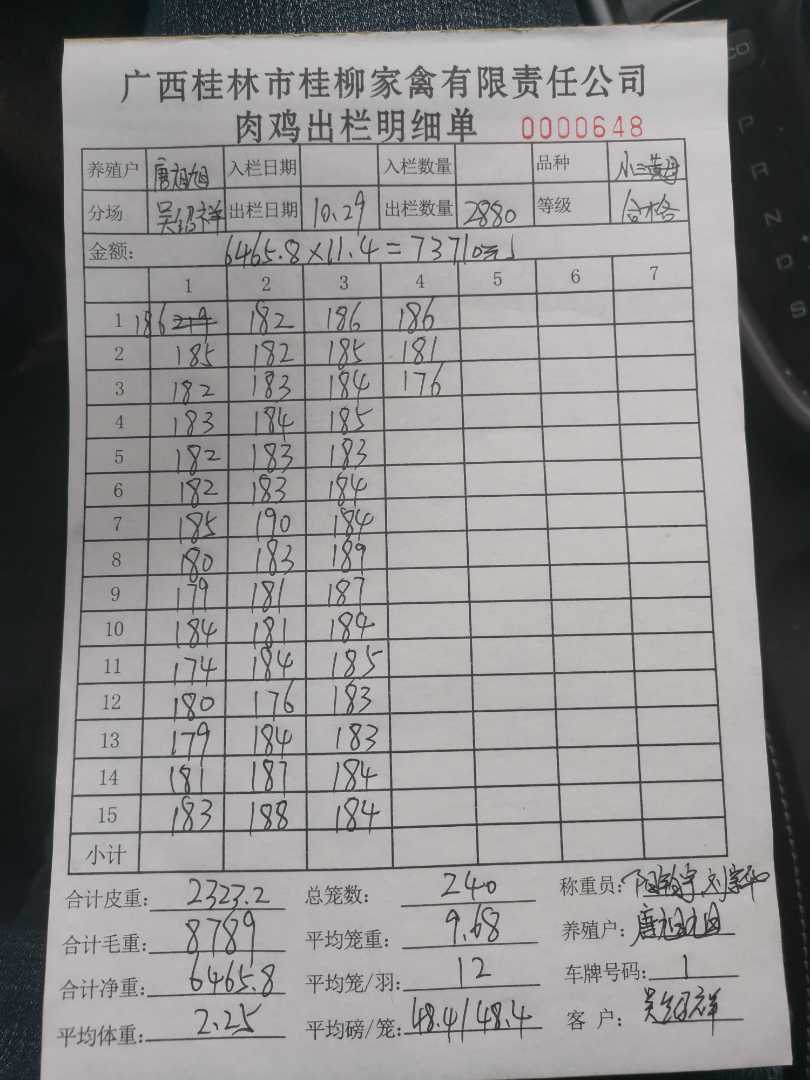 广西桂林市桂柳家禽有限责任公司
肉鸡出栏明细单 0000648
养殖户 唐祖旭 入栏日期 入栏数量 品种 小三黄母
分场 吴绍祥 出栏日期 10.29 出栏数量 2880 等级 合格
金额: 6465.8×11.4=73710元
1 2 3 4 5 6 7
1 186 182 186 186
2 185 182 185 181
3 182 183 184 176
4 183 184 185
5 182 183 183
6 182 183 184
7 185 190 184
8 180 183 189
9 179 181 187
10 184 181 184
11 174 184 185
12 180 176 183
13 179 184 183
14 181 187 184
15 183 188 184
小计
合计皮重: 2323.2 总笼数: 240 称重员:
合计毛重: 8789 平均笼重: 9.68 养殖户: 唐祖旭
合计净重: 6465.8 平均笼/羽: 12 车牌号码: 1
平均体重: 2.25 平均磅/笼: 48.4/48.4 客 户: 吴绍祥
CO
P
R
N
D
S
+